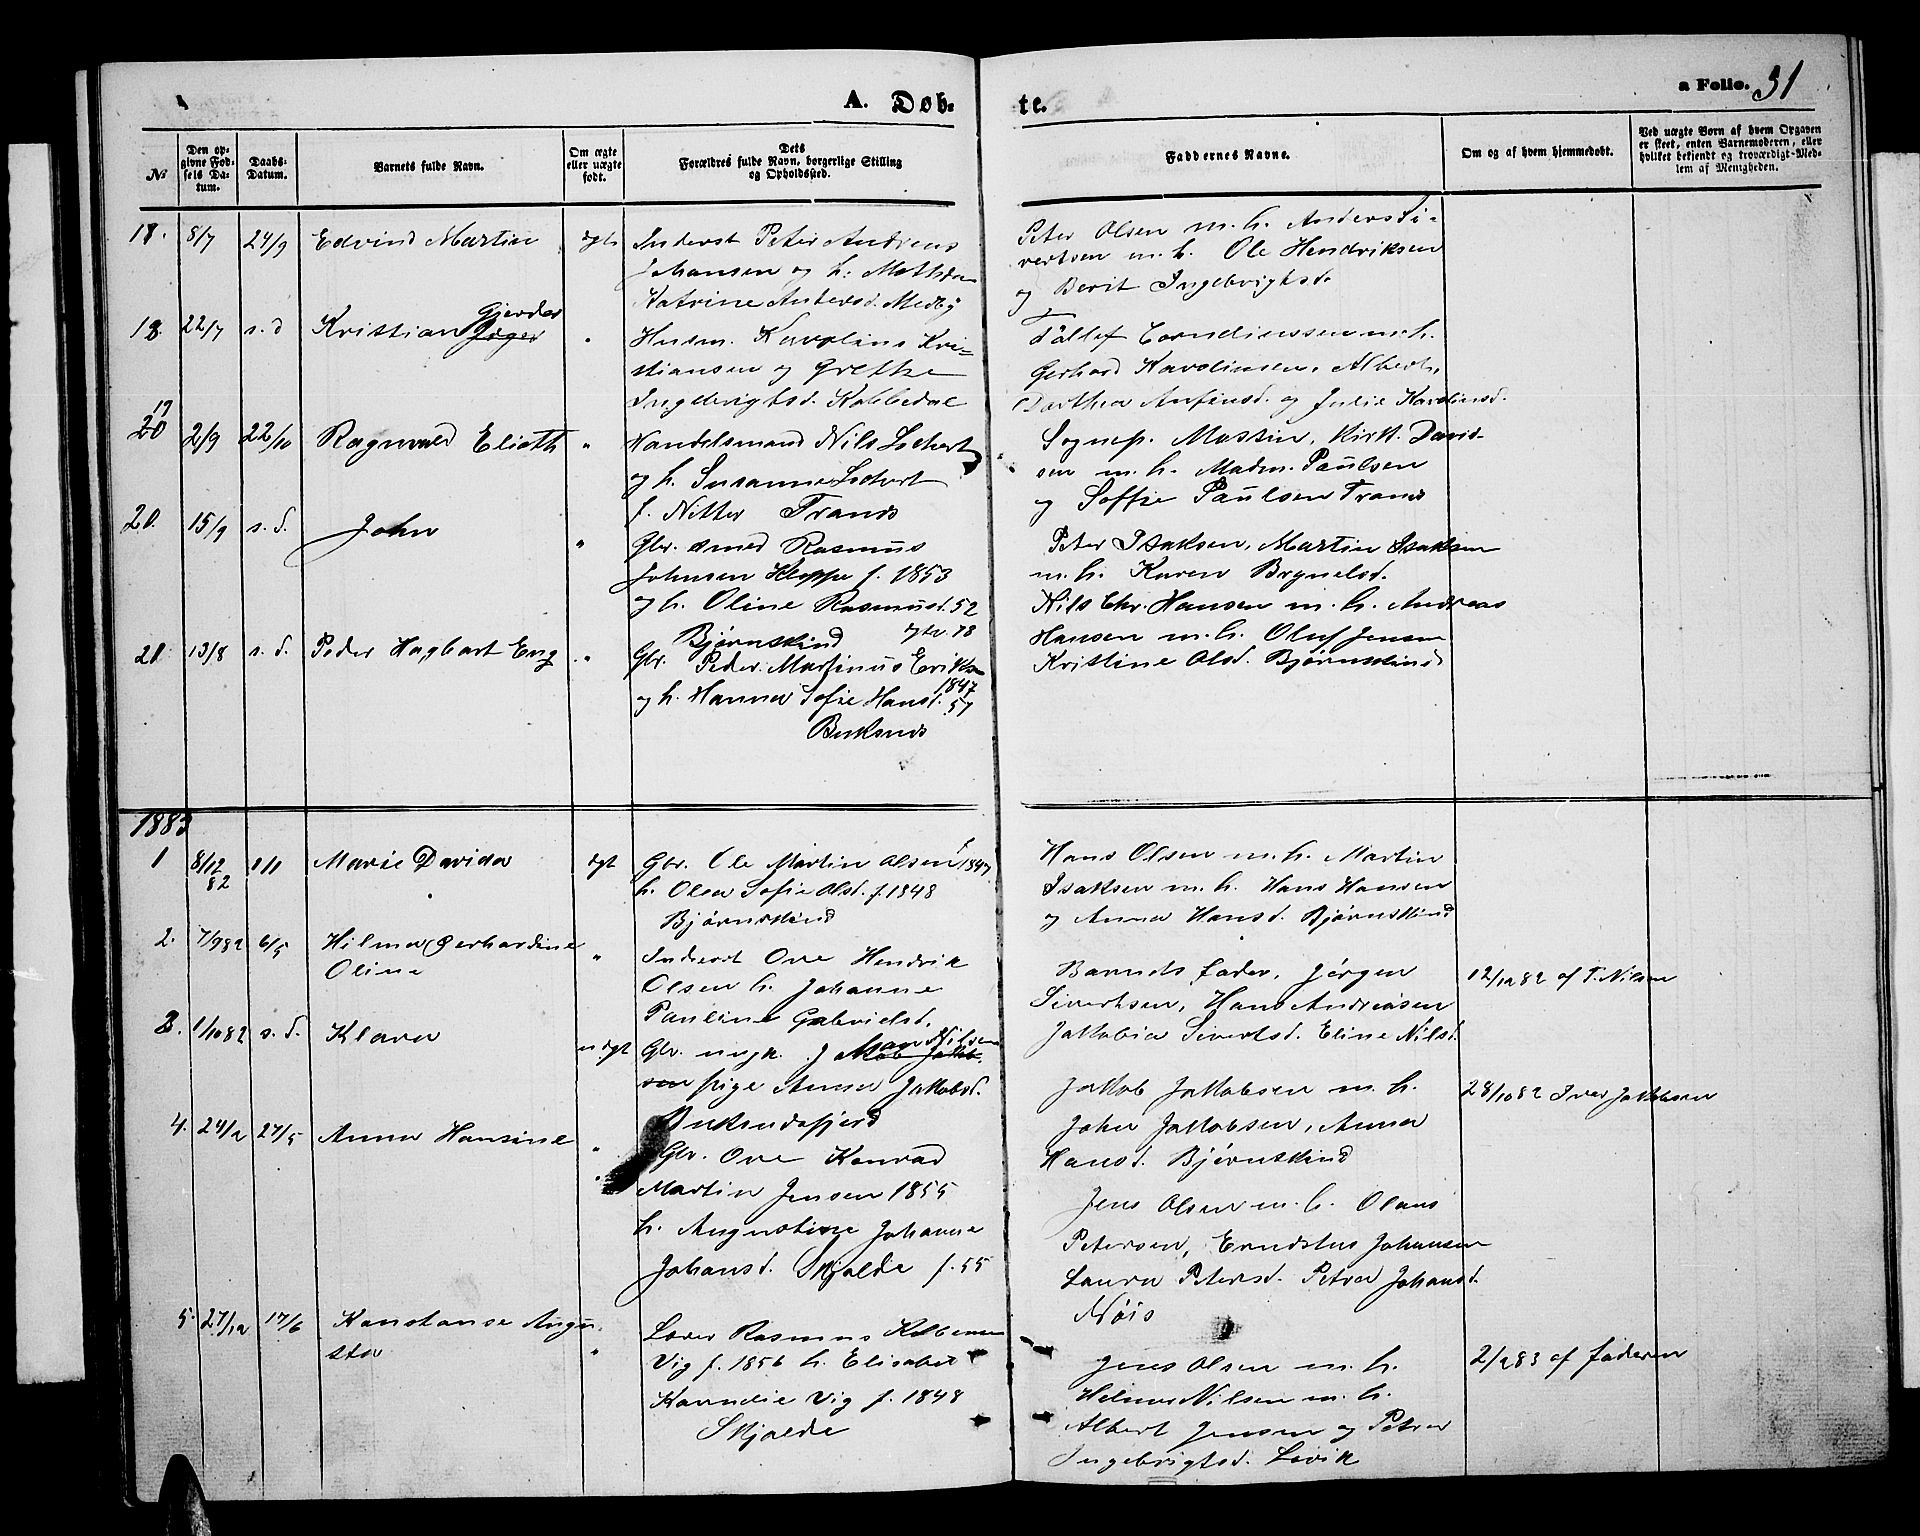 A. Døb-
te.
a Folio. 31
No
Den op-
givne Fød-
sels Da-
tum.
Daabs-
Datum.
Barnets fulde Navn.
Om ægte
eller uægte
født.
Dets
Forældres fulde Navn, borgerlige Stilling
og Opholdssted.
Faddernes Navne.
Om og af hvem hjemmedøbt.
Ved uægte Børn af hvem Opgaven
er skeet, enten Barnemoderen, eller
hvilket bekjendt og troværdigt Med-
lem af Menigheden.
8/7 24/9 Edvind Martin ægte Inderst Peter Andreas
Johansen og h. Mathda
Katrine Andersd. Medby
Peter Olsen m. h. Anders Si-
vertsen m. h. Ole Hendriksen
og Berit Ingebrigtsd.
18. 22/7 s. d Kristian Jæger Gjerdar " Husm. Karolius Kri-
stiansen og Grethe
Ingebrigtsd. Kobbedal
Tollef Corneliussen m. h.
Gerhard Karolinsen, Albert,
Dorthea Anfinsd. og Julie Karolinsd.
19
20 2/9 22/10 Ragnvald Elioth " Handelsmand Nils Lockert
og h. Susanne Lockert
f. Nitter Tranøs
Sognep. Mossin, Kirk. David-
sen m. h. Madm. Paulsen
og Soffie Paulsen Tranøs
20. 15/9 s. d. John " Gbr. Smed Rasmus
Johnsen Kloppe f. 1853
og h. Oline Rasmusd. 52
Bjørnskind gtv. 78
Peter Isaksen, Martin Isaksen
m. h. Karen Brynelsd.
21 13/8 s. d. Peder Hagbart Eng " Gbr. Peder Martinus Eriks
1847
og h. Hanna Sofie Hansd. 57
Buksnes
Nils Chr. Hansen m. h. Andreas
Hansen m. h. Oluf Jensen
Kristine Olsd. Bjørnskind
1883
1 8/12 82 1/1 Marie Davida ægt Gbr. Ole Martin Olsen f. 1847
h. Olea Sofie Olsd. f. 1848
Bjørnskind
Hans Olsen m. h. Martin
Isaksen m. h. Hans Hansen
og Anna Hansd. Bjørnskind
2. 7/9 82 6/5 Hilma Gerhardine
Oline " Inderst Ove Hendrik
Olsen h. Johanne
Pauline Gabrielsd.
Barnets fader, Jørgen
Sivertsen, Hans Andreasen
Jakobia Sivertsd. Eline Nilsd.
12/12 82 af P. Nilsen
3. 1/10 82 s. d. Klara uægt Gbr. ungk. Jakob Jakob-
sen pige Anna Jakobsd.
Buksnesfjord
Jakob Jakobsen m. h.
John Jakobsen, Anna
Hansd. Bjørnskind
28/10 82 Iver Jakobsen
4. 24/2 27/5 Anna Hansine " Gbr. Ove Konrad
Martin Jensen 1855
h. Augustine Johanne
Johansd. Skjolde f. 55
Jens Olsen m. h. Olaus
Petersen, Erndstus Johansen
Laura Petersd. Petra Johansd.
Nøis
5. 27/12 17/6 Konstanse Augu-
sta " Lærer Rasmus Kolbensen
Vig f. 1856 h. Elisabet
Karndie Vig f. 1848
Skjolde
Jens Olsen m. h.
Helmer Nilsen m. h.
Albert Jensen og Petra
Ingebrigtsd. Lovik
2/2 83 af faderen